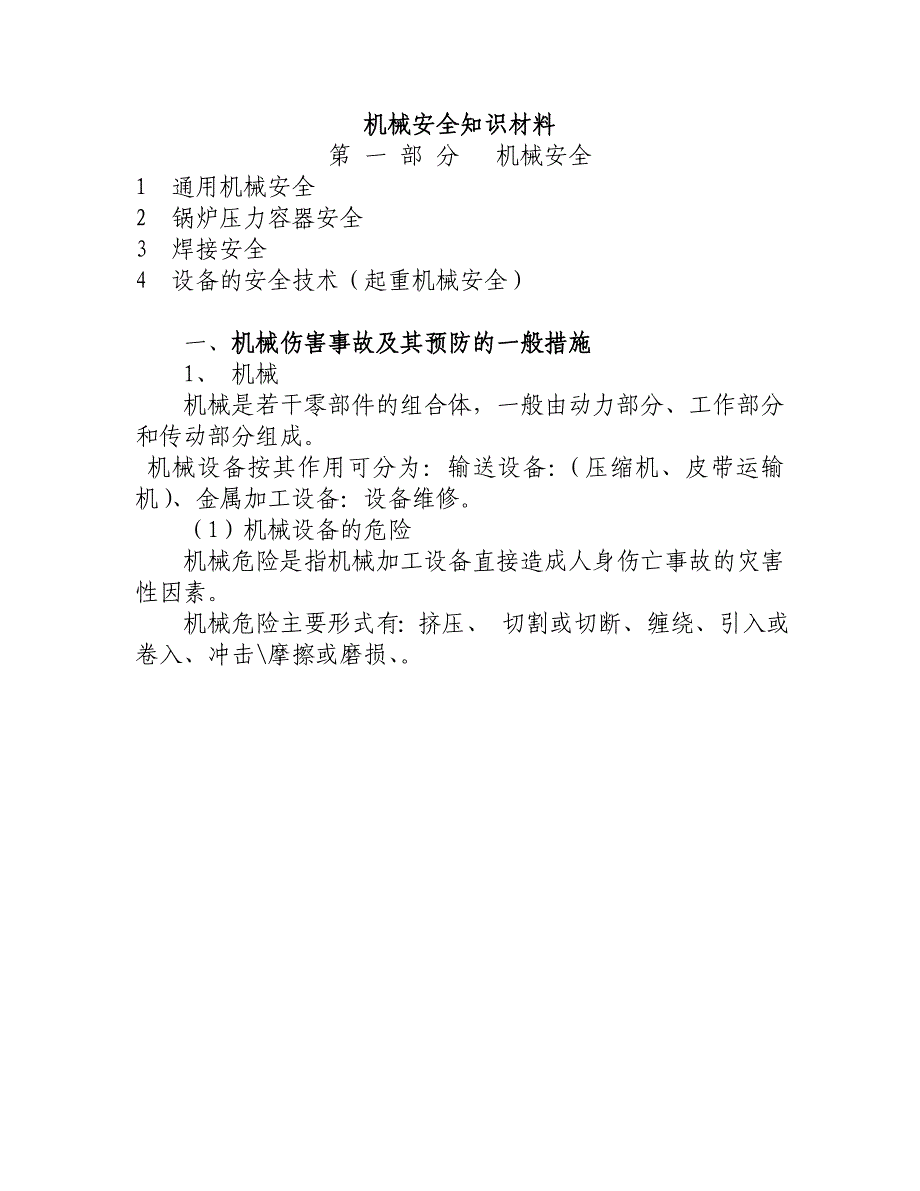 机械安全知识材料
第 一 部 分   机械安全
1  通用机械安全
2  锅炉压力容器安全
3  焊接安全
4  设备的安全技术（起重机械安全）
一、机械伤害事故及其预防的一般措施
1、 机械
机械是若干零部件的组合体，一般由动力部分、工作部分
和传动部分组成。
机械设备按其作用可分为：输送设备：（压缩机、皮带运输
机）、金属加工设备：设备维修。
（1）机械设备的危险
机械危险是指机械加工设备直接造成人身伤亡事故的灾害
性因素。
机械危险主要形式有：挤压、 切割或切断、缠绕、引入或
卷入、冲击\摩擦或磨损、。